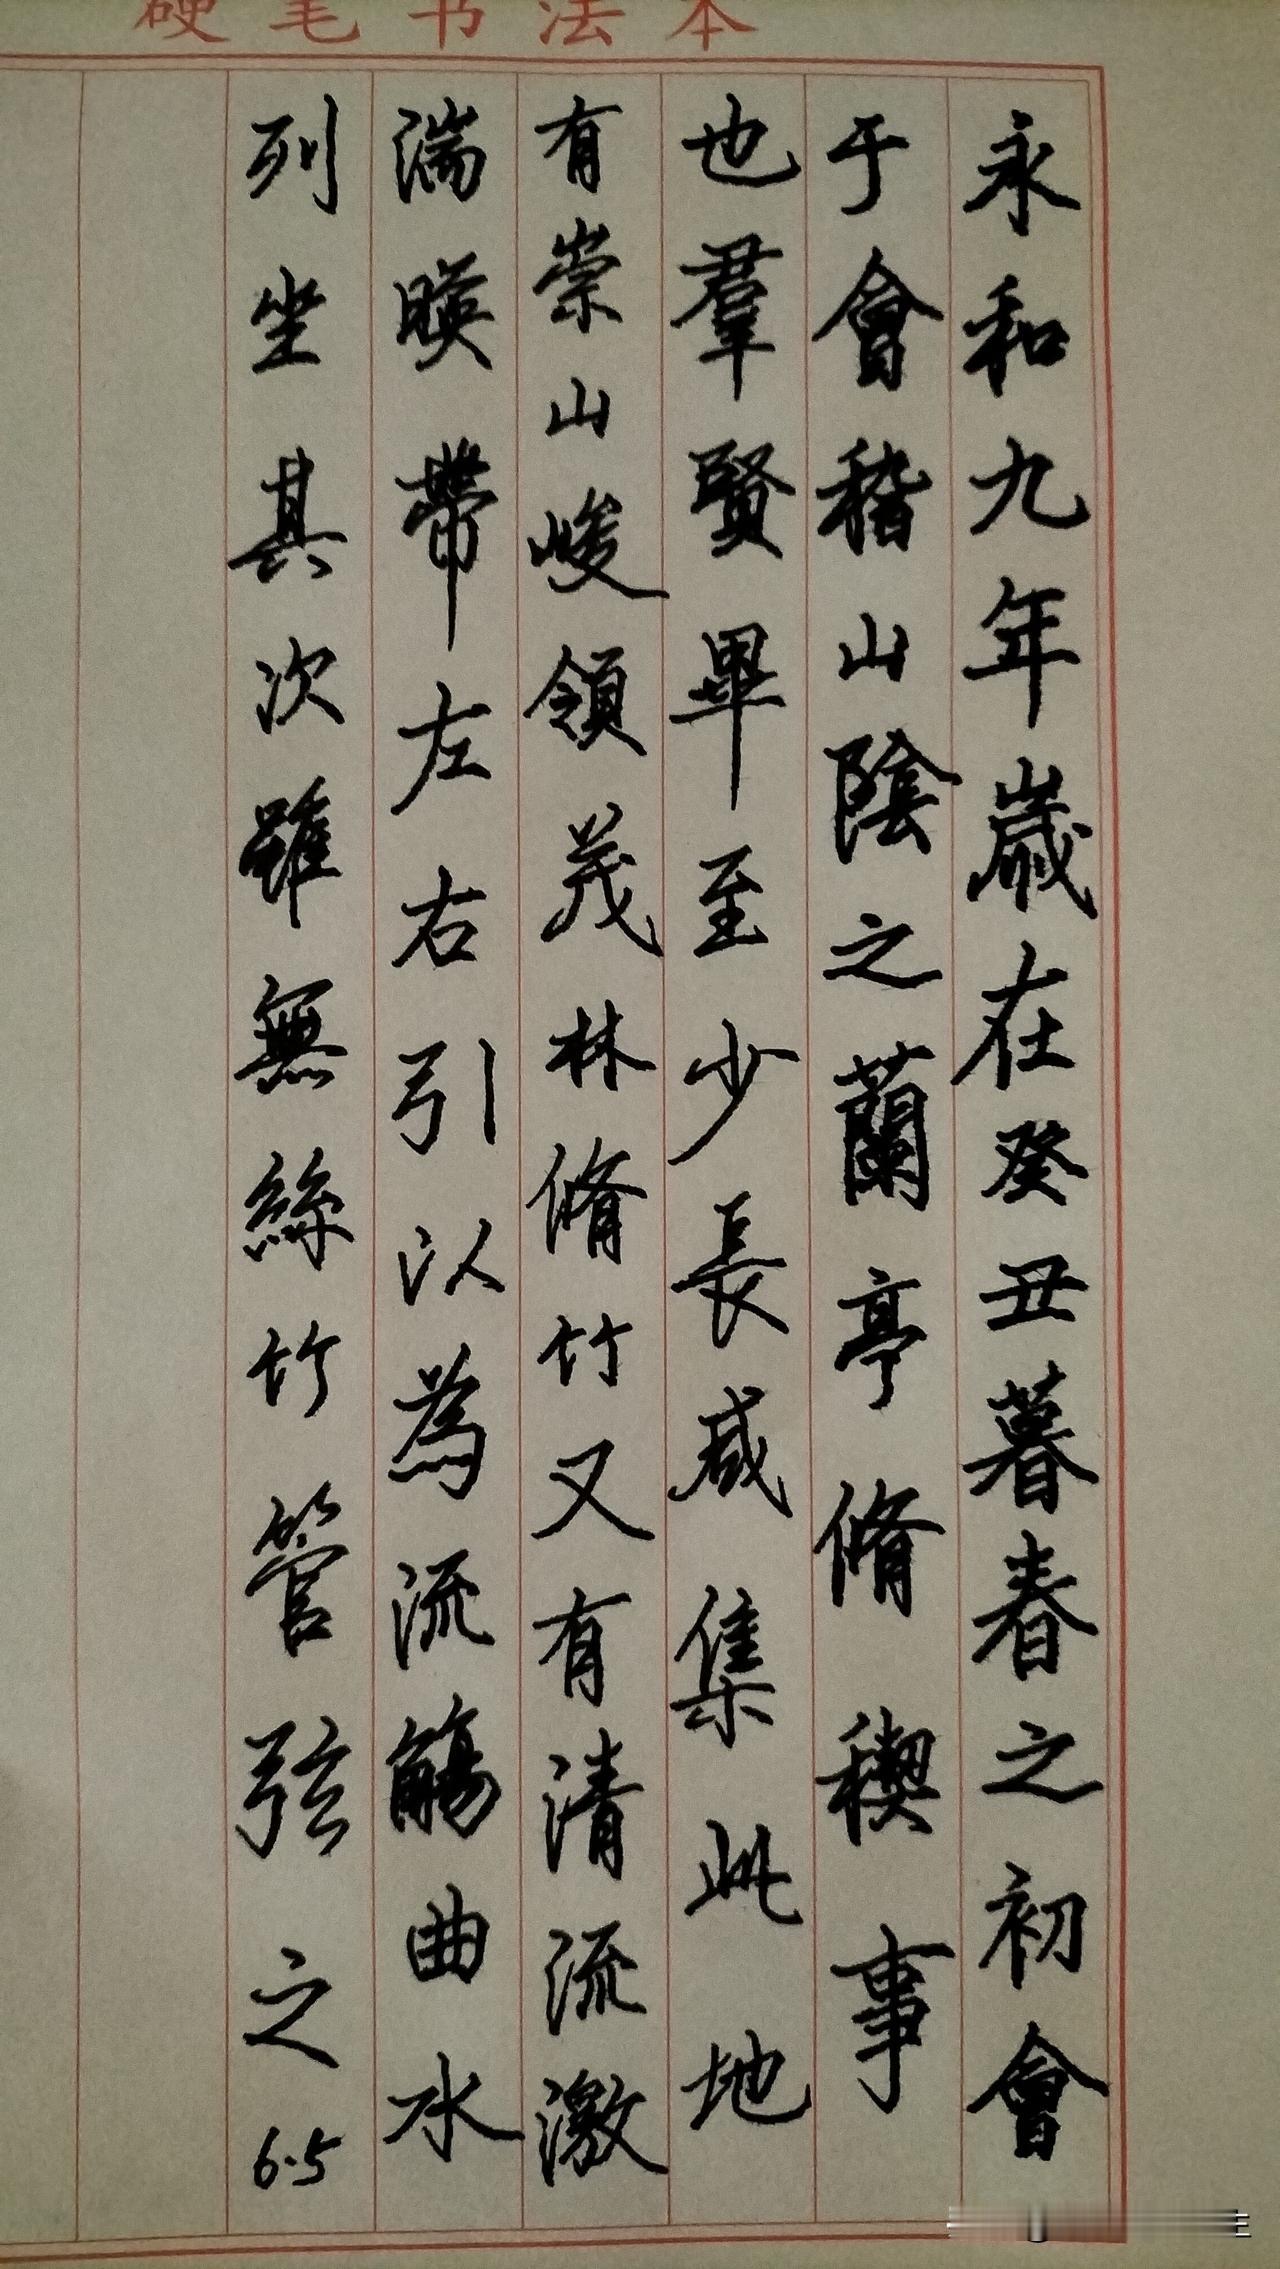 硬笔书法本
永和九年歲在癸丑暮春之初會
于會稽山陰之蘭亭脩稧事
也羣賢畢至少長咸集此地
有崇山峻領茂林脩竹又有清流激
湍暎帶左右引以為流觴曲水
列坐其次雖無絲竹管弦之
6.5